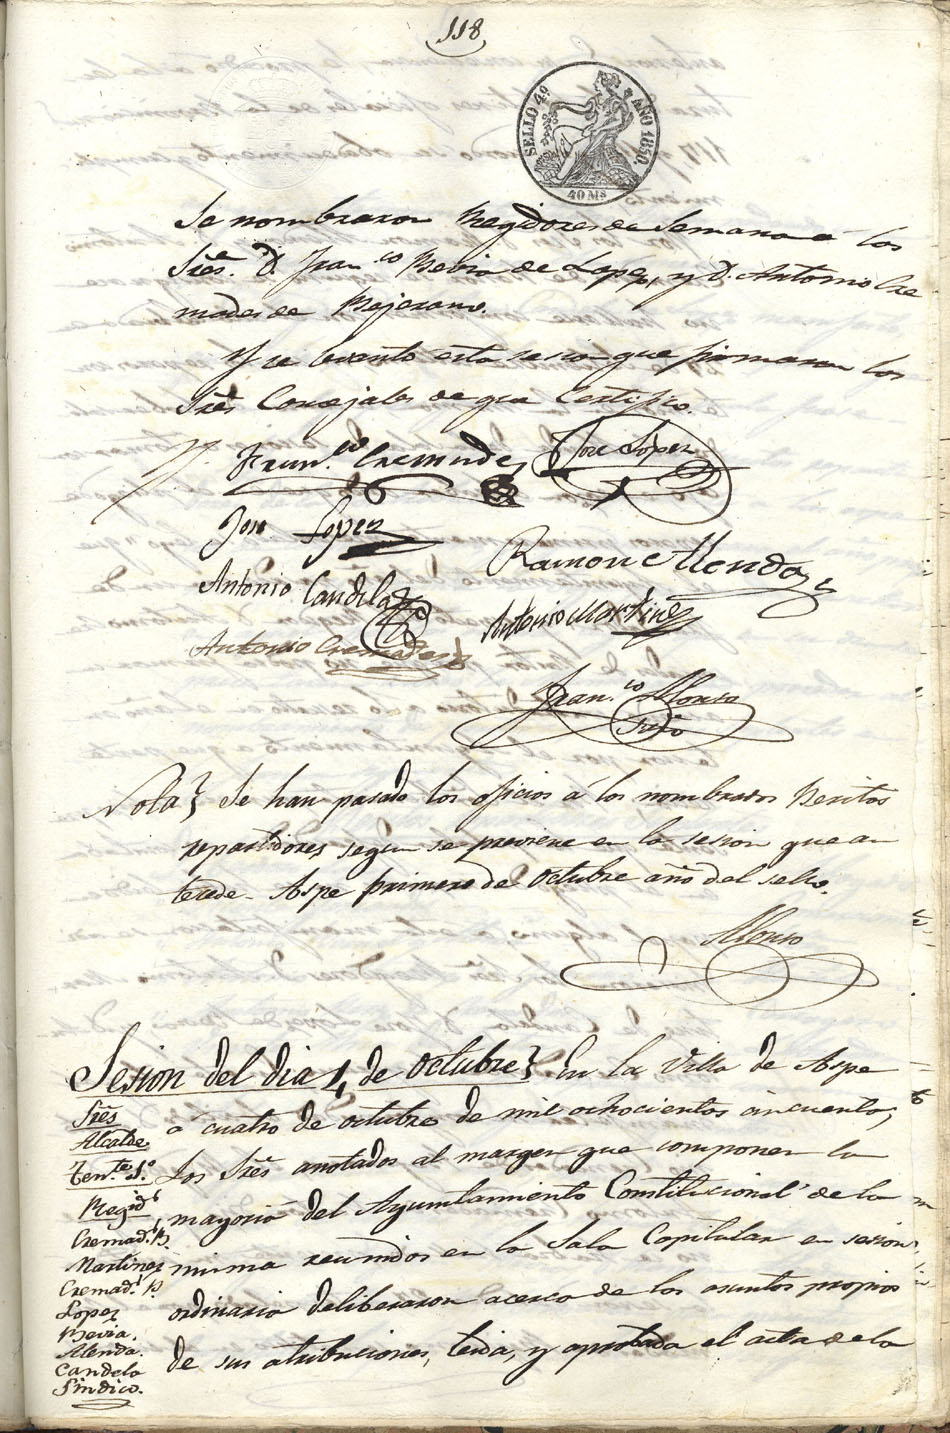 118
SELLO 4º AÑO 1850.
40 Ms
Se nombraron Regidores de Semana a los
Sres. D. Fran.co Beviá de Lopez, y D. Antonio Cre
mades de Bejerano.
Y se levantó esta sesion que firmaron los
Sres Concejales de que Certifico.
Fran.co Cremades
Jose Lopez
Jose Lopez
Ramon Allenda
Antonio Candela
Antonio Martinez
Antonio Cremades
Fran.co Alonso
Srio
Nota} Se han pasado los oficios á los nombrados Peritos
repartidores segun se previene en la sesion que an
tecede. Aspe primero de Octubre año del sello.
Alonso
Sesion del dia 4, de Octubre} En la Villa de Aspe
á cuatro de octubre de mil ochocientos cincuenta;
Los Sres anotados al margen que componen la
mayoria del Ayuntamiento Constitucional de la
misma reunidos en la Sala Capitular en sesion
ordinaria deliberaron acerca de los asuntos propios
de sus atribuciones, leida, y aprobada el acta de la
Sres
Alcalde.
Ten.te 1.º
Regid.s
Cremad.s B.
Martinez
Cremad.s P.
Lopez
Bevia.
Alenda.
Candela
Sindico.